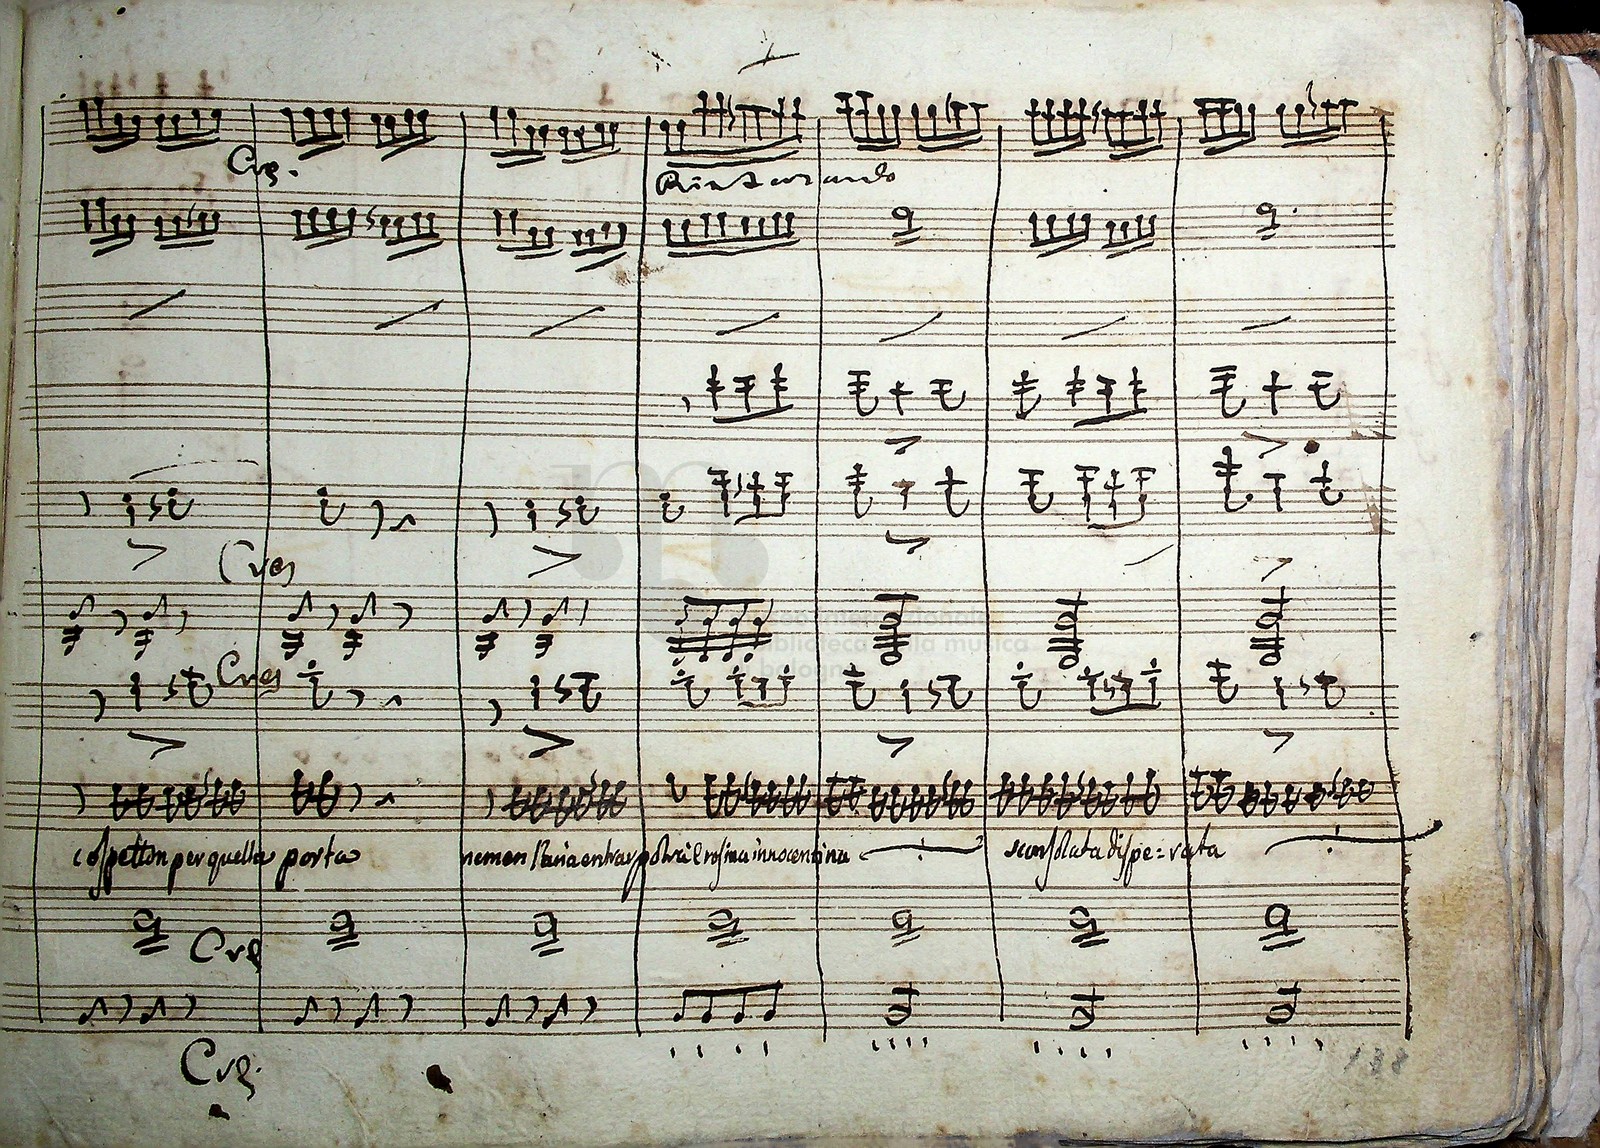 Cres.
Rinforzando
Cres
Cres
cospetton per quella porta nemen l'aria entrar potrà e rosina innocentina sconsolata dispe=rata
Cres
Cres.
138
museo internazionale
biblioteca della musica
di bologna